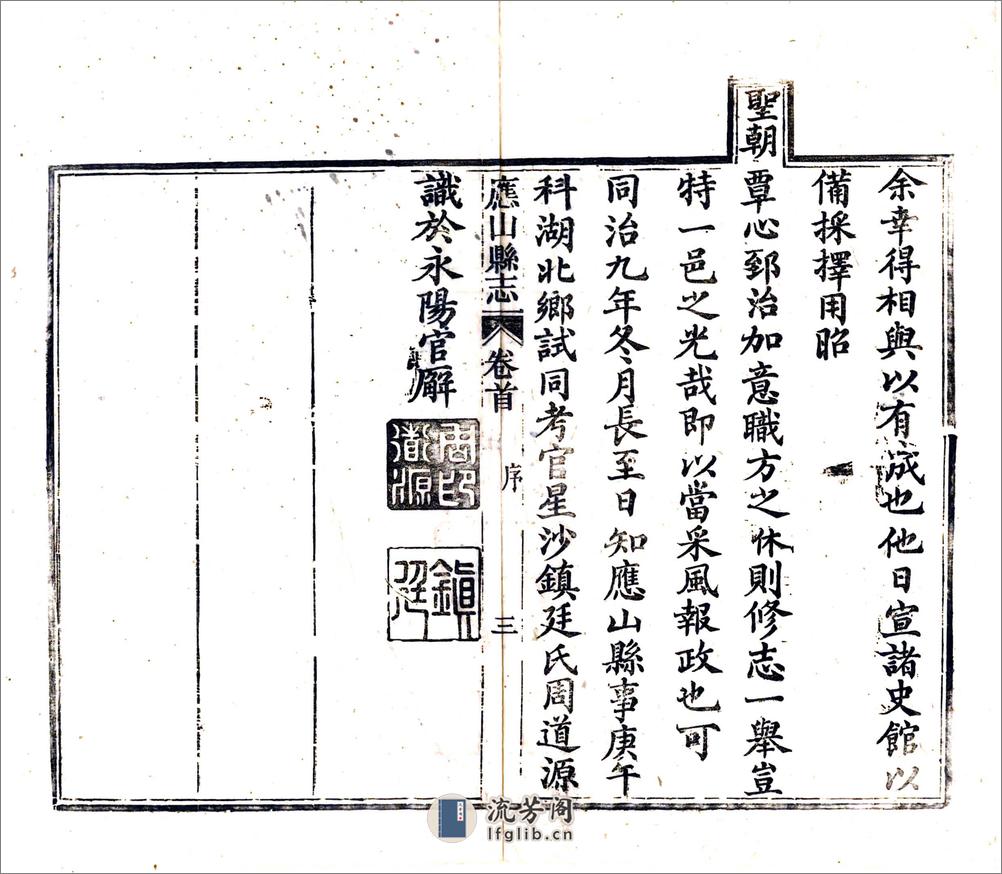 余幸得相與以有成也他日宣諸史館以
備採擇用昭
聖朝
覃心郅治加意職方之休則修志一舉豈
特一邑之光哉即以當采風報政也可
同治九年冬月長至日知應山縣事庚午
科湖北鄉試同考官星沙鎮廷氏周道源
應山縣志 卷首 序 三
識於永陽官廨
周印道源
鎮廷
流芳阁
lfglib.cn